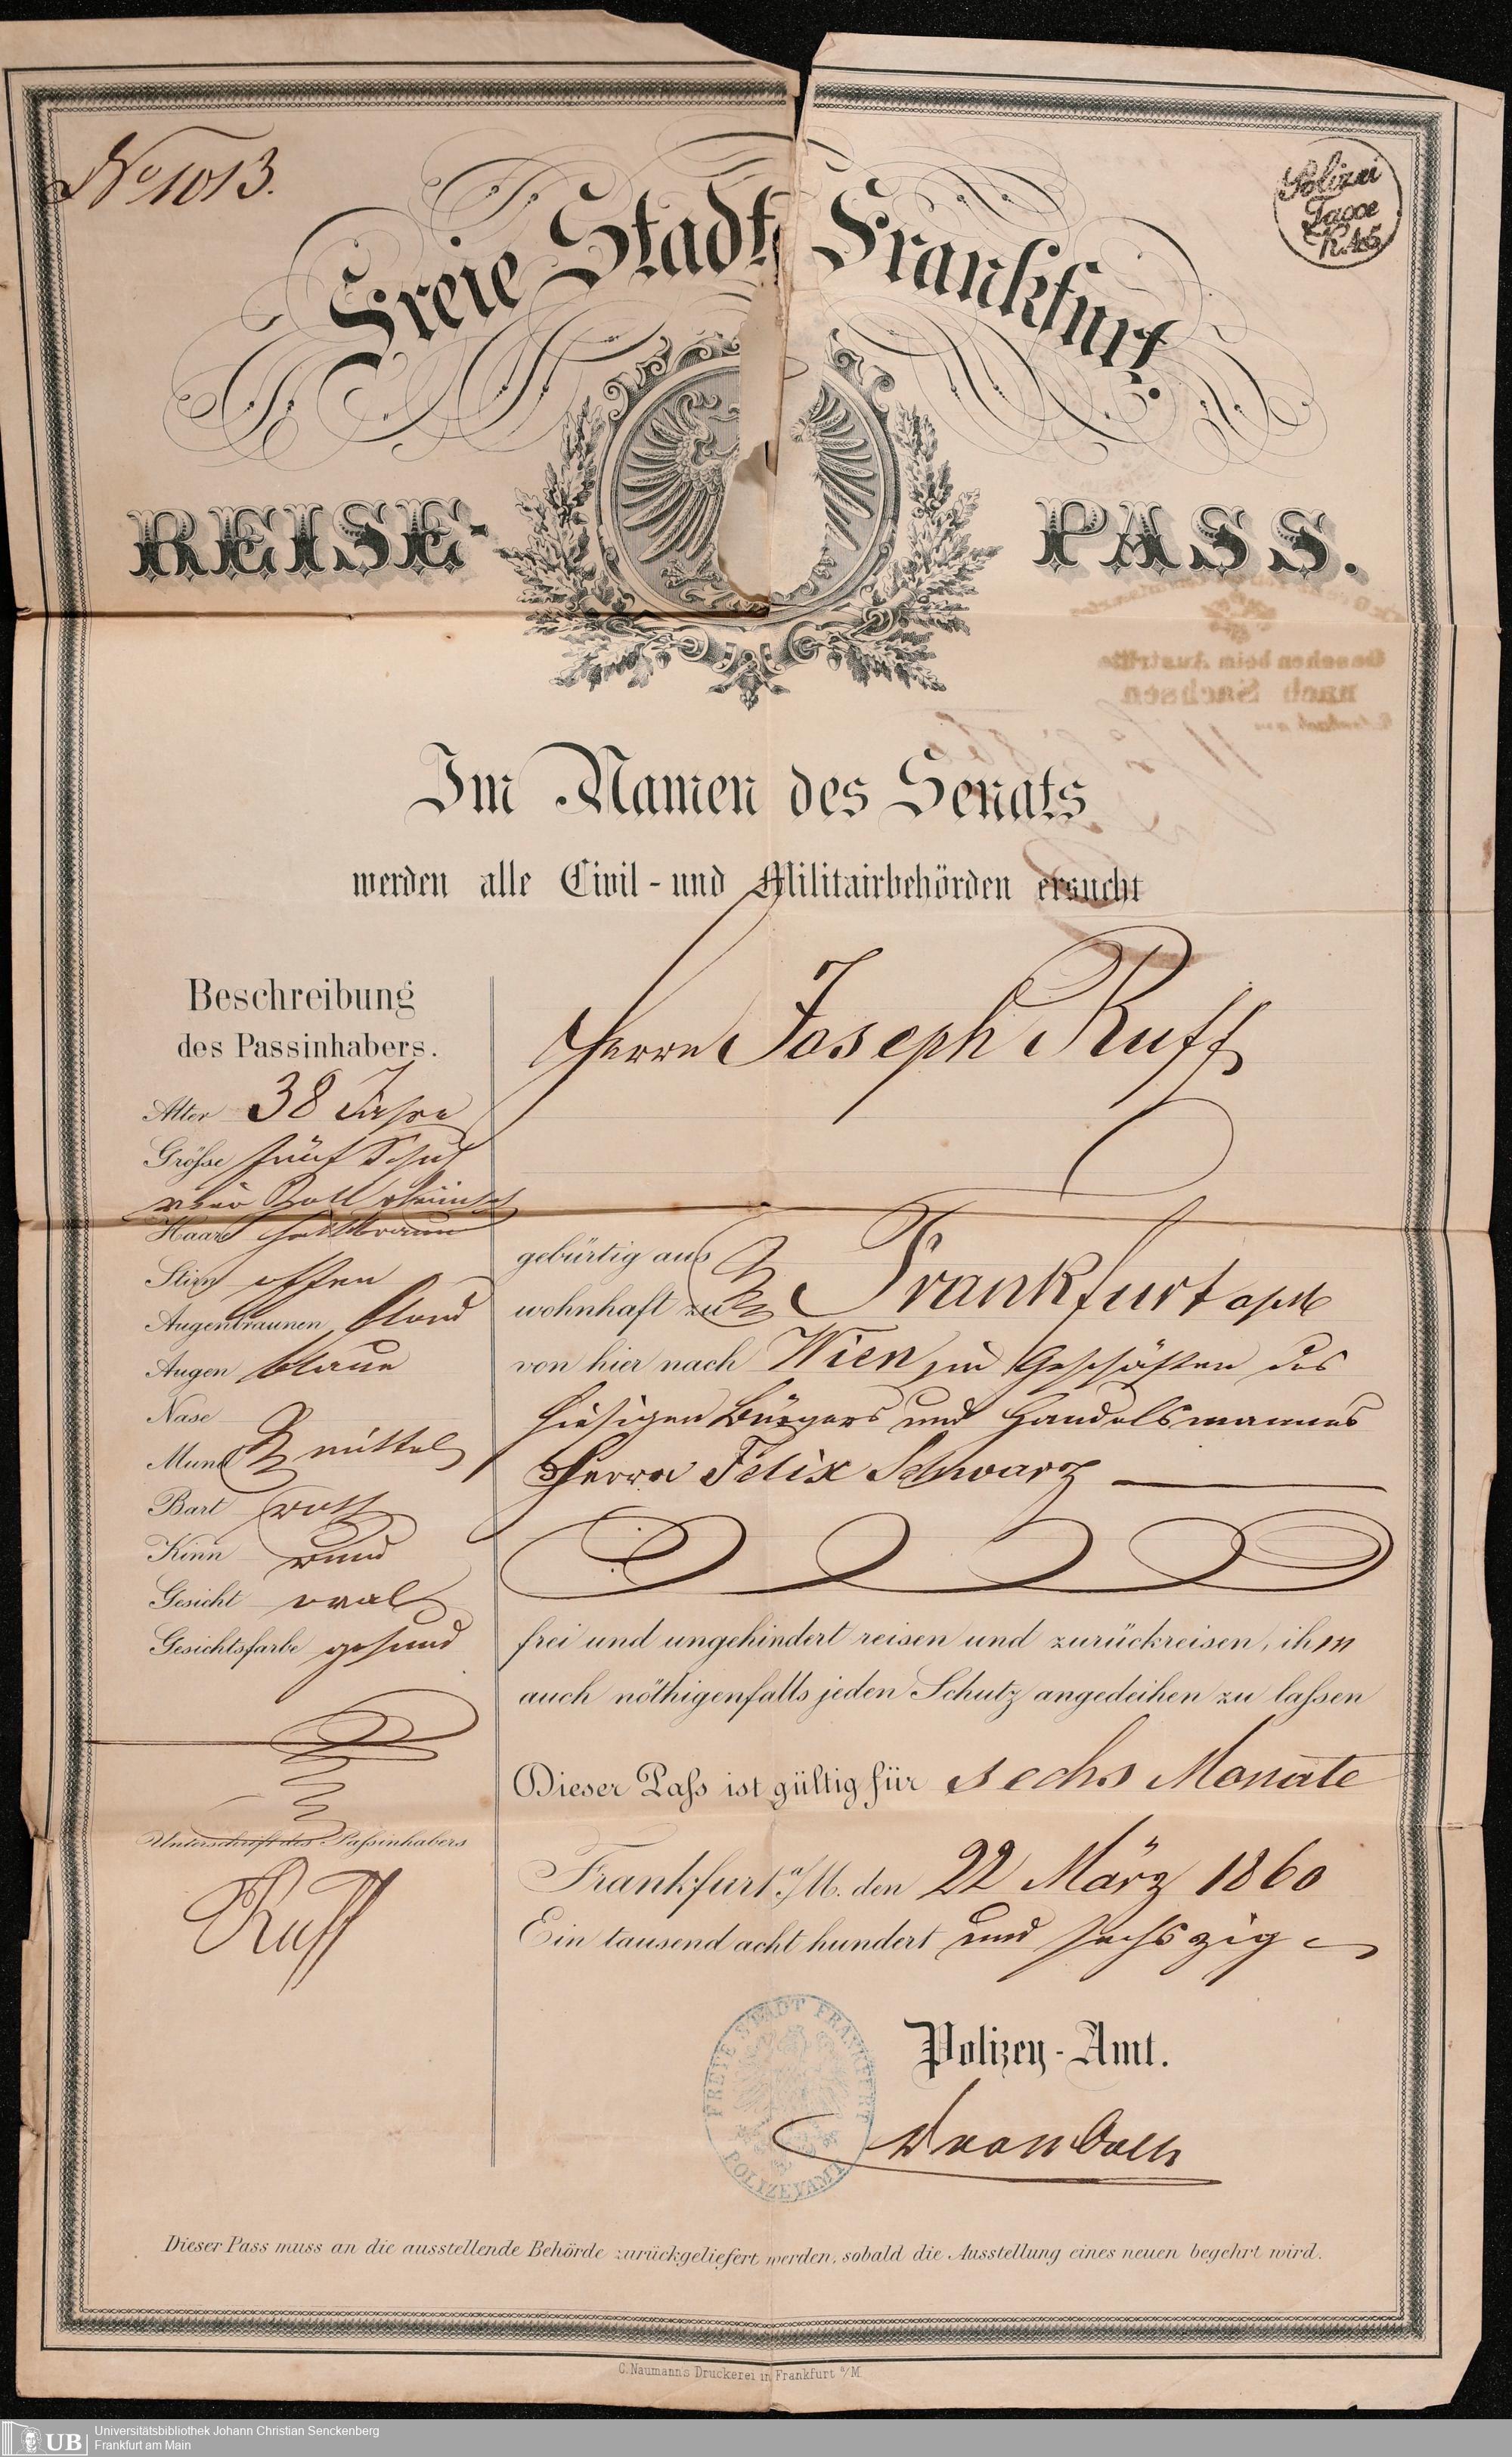 No 1013.
Polizei
Taxe
K. 45
Freie Stadt Frankfurt.
REISE-PASS.
Im Namen des Senats
werden alle Civil- und Militairbehörden ersucht
Beschreibung
des Passinhabers.
Alter 38 Jahre
Größe fünf Schuh
vier Zoll rheinisch
Haare hellbraun
Stirn offen
Augenbraunen blond
Augen blaue
Nase
Mund mittel
Bart roth
Kinn rund
Gesicht oval
Gesichtsfarbe gesund
Unterschrift des Paßinhabers
Ruff
Herrn Joseph Ruff
gebürtig aus
wohnhaft zu Frankfurt a/M
von hier nach Wien in Geschäften des
hiesigen Bürgers und Handelsmannes
Herrn Felix Schwarz
frei und ungehindert reisen und zurückreisen, ihm
auch nöthigenfalls jeden Schutz angedeihen zu laßen
Dieser Paß ist gültig für sechs Monate
Frankfurt a/M. den 22 März 1860
Ein tausend acht hundert und sechszig
Polizey-Amt.
FREIE STADT FRANKFURT
POLIZEYAMT
Dieser Pass muss an die ausstellende Behörde zurückgeliefert werden, sobald die Ausstellung eines neuen begehrt wird.
C. Naumann's Druckerei in Frankfurt a/M.
UB
Universitätsbibliothek Johann Christian Senckenberg
Frankfurt am Main